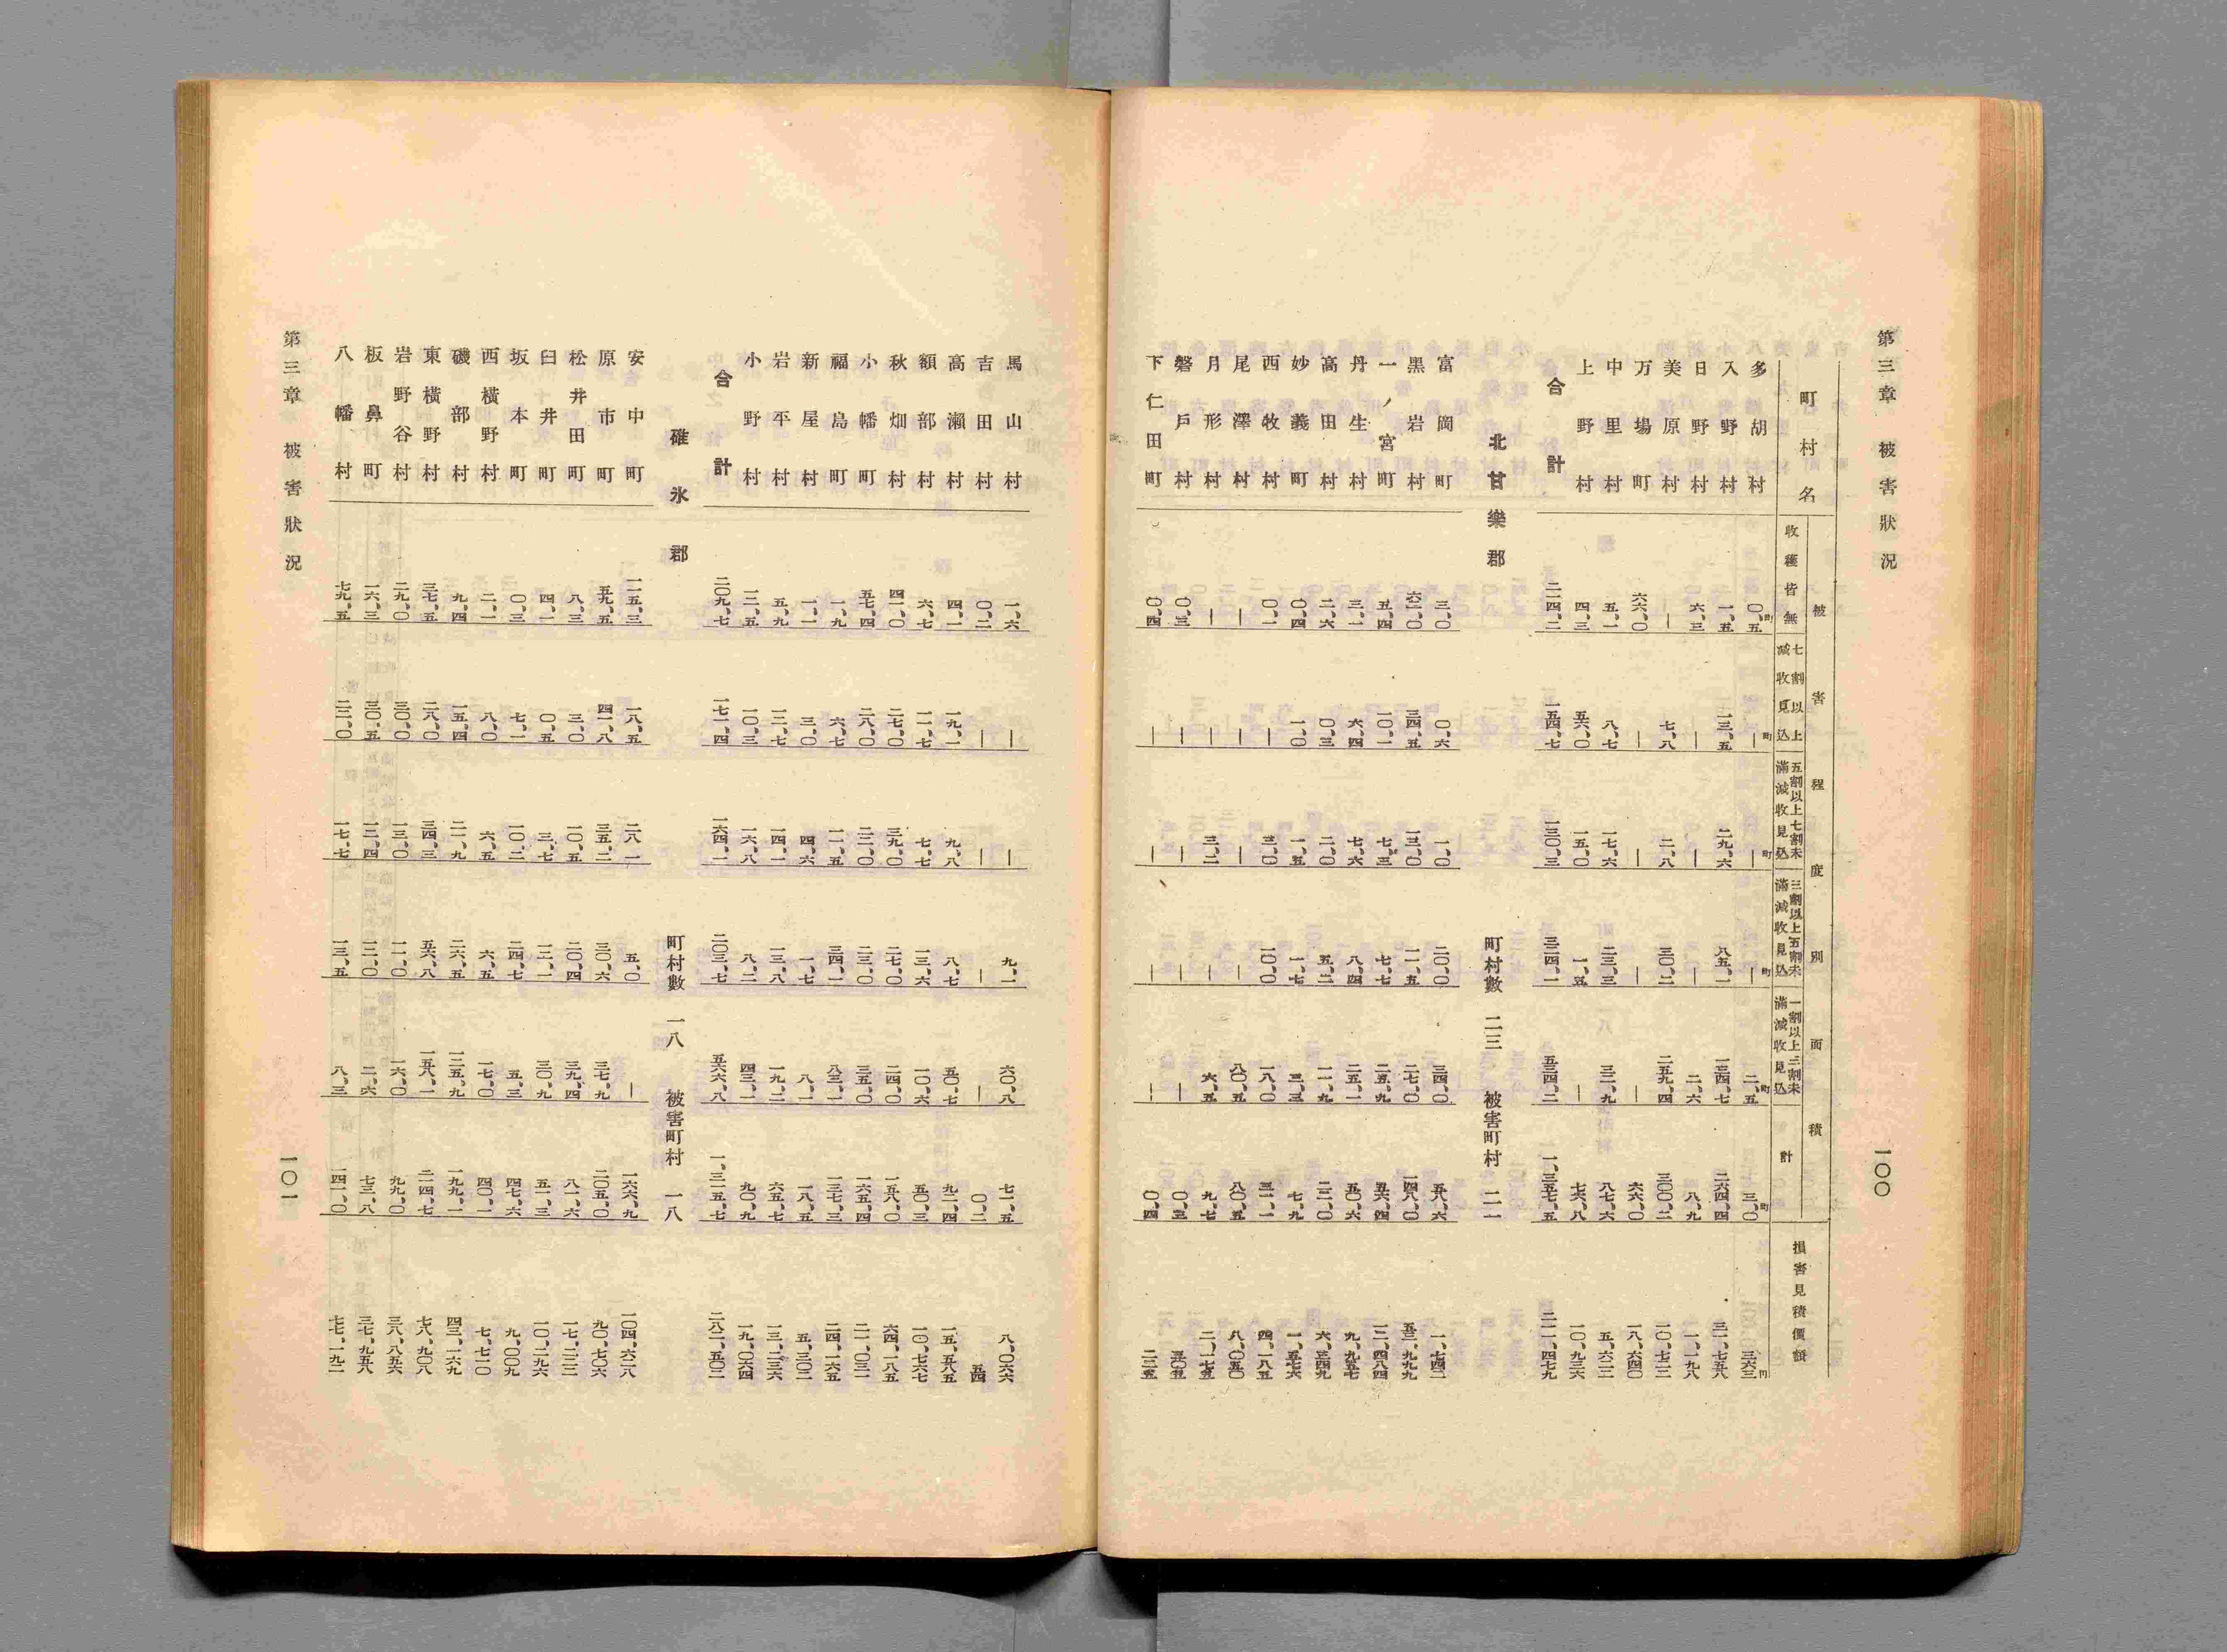 第三章 被害狀況
一〇〇
町村名
被害程度別面積
收穫皆無
七割以上減收見込
五割以上七割未滿減收見込
三割以上五割未滿減收見込
一割以上三割未滿減收見込
計
損害見積價額
多胡村 〇、五町 ― 町 ― 町 ― 町 二、五町 三、〇町 三六三円
入野村 一、五 一三、五 二九、六 八五、一 一三四、七 二六四、四 三一、七五八
日野村 六、三 ― ― ― 二、六 八、九 一、一九八
美原村 ― 七、八 二、八 三〇、二 二五九、四 三〇〇、二 一〇、七二二
万場町 六六、〇 ― ― ― ― 六六、〇 一八、六四〇
中里村 五、一 八、七 一七、六 二三、三 三二、九 八七、六 五、六二二
上野村 四、三 五六、〇 一五、〇 一、五 ― 七六、八 一〇、九三六
合計 二一四、二 一五四、七 一三〇、三 三二四、一 五三四、二 一、三五七、五 二一一、四七九
北甘樂郡 町村數 二三 被害町村 二一
富岡町 三、〇 〇、六 一、〇 二〇、〇 三四、〇 五八、六 一、七四二
黑岩村 六二、〇 三四、五 一三、〇 一一、五 二七、〇 一四八、〇 五三、九九九
一ノ宮町 五、四 一〇、一 七、三 七、七 二五、九 五六、四 一二、四八四
丹生村 三、一 六、四 七、六 八、四 二五、一 五〇、六 九、九五七
高田村 二、六 〇、三 二、〇 五、二 一一、九 二二、〇 六、三四九
妙義町 〇、四 一、〇 一、五 一、七 三、三 七、九 一、五七六
西牧村 〇、一 ― 三、〇 一〇、〇 一八、〇 三一、一 四、一八五
尾澤村 ― ― ― ― 八〇、五 八〇、五 八、〇五〇
月形村 ― ― 三、二 ― 六、五 九、七 二、一七五
磐戶村 〇、三 ― ― ― ― 〇、三 三〇五
下仁田町 〇、四 ― ― ― ― 〇、四 二二五
馬山村 一、六 ― ― 九、一 六〇、八 七一、五 八、〇六六
吉田村 〇、二 ― ― ― ― 〇、二 五四
高瀨村 四、一 一九、一 九、八 八、七 五〇、七 九二、四 一五、五八五
額部村 六、七 一一、七 七、七 一三、六 一〇、六 五〇、三 一〇、七六七
秋畑村 四一、〇 二七、〇 三九、〇 二七、〇 二四、〇 一五八、〇 六四、一八五
小幡町 五七、四 二八、〇 二二、〇 二三、〇 三五、〇 一六五、四 二一、〇三一
福島町 一、九 六、七 一一、五 三四、一 八三、一 一三七、三 二四、一六五
新屋村 一、一 三、〇 四、六 一、七 八、一 一八、五 五、三〇二
岩平村 五、九 一二、七 一四、一 一三、八 一九、二 六五、七 一三、二三六
小野村 一二、五 一〇、三 一六、八 八、二 四三、一 九〇、九 一九、〇六四
合計 二〇九、七 一七一、四 一六四、一 二〇三、七 五六六、八 一、三一五、七 二八二、五〇二
碓氷郡 町村數 一八 被害町村 一八
安中町 一一五、三 一八、五 二八、一 五、〇 ― 一六六、九 一〇四、六二八
原市町 五九、五 四一、八 三五、二 三〇、六 三七、九 二〇五、〇 九〇、七〇六
松井田町 八、三 三、〇 一〇、五 二〇、四 三九、四 八一、六 一七、二二二
臼井町 四、一 〇、五 三、七 一二、一 三〇、九 五一、三 一〇、二九六
坂本町 〇、三 七、一 一〇、二 二四、七 五、三 四七、六 九、〇〇九
西橫野村 二、一 八、〇 六、五 六、五 一七、〇 四〇、一 七、七一〇
磯部村 九、四 一五、四 二一、九 二六、五 一二五、九 一九九、一 四三、一六九
東橫野村 三七、五 二八、〇 三四、三 五六、八 一五八、一 二一四、七 七八、九〇八
岩野谷村 二九、〇 三〇、〇 一三、〇 一一、〇 一六、〇 九九、〇 三八、八五六
板鼻町 一六、三 三〇、五 一二、四 一二、〇 二、六 七三、八 三七、九五八
八幡村 七九、五 二二、〇 一七、七 一三、五 八、三 一四一、〇 七七、一九二
第三章 被害狀況
一〇一